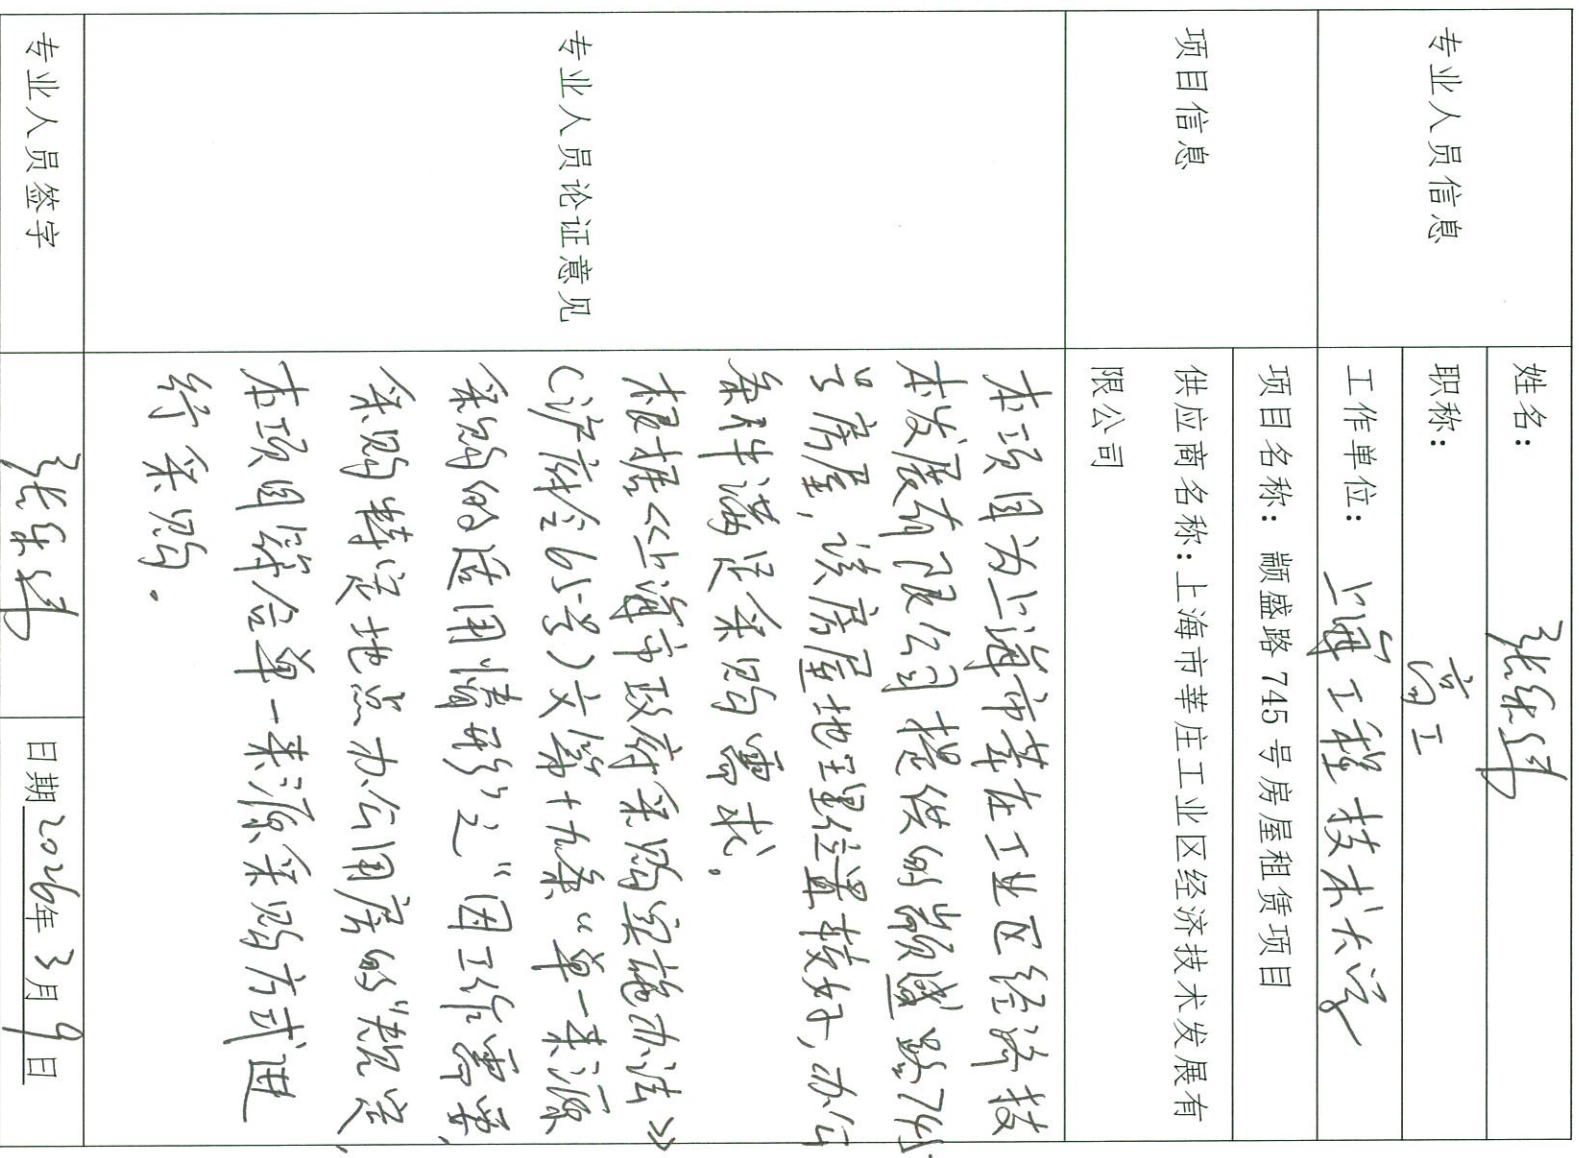 专业人员信息
姓名：张
职称：高工
工作单位：上海工程技术大学
项目信息
项目名称：颛盛路745号房屋租赁项目
供应商名称：上海市莘庄工业区经济技术发展有
限公司
专业人员论证意见
本项目为上海市莘庄工业区经济技
术发展有限公司提供的颛盛路745
号房屋，该房屋地理位置较好，办公
条件满足采购需求。
根据《上海市政府采购实施办法》
（沪府令65号）文第十九条“单一来源
采购的适用情形”之“因工作需要，
采购特定地点办公用房的”规定，
本项目符合单一来源采购方式进
行采购。
专业人员签字
张
日期2026年3月9日